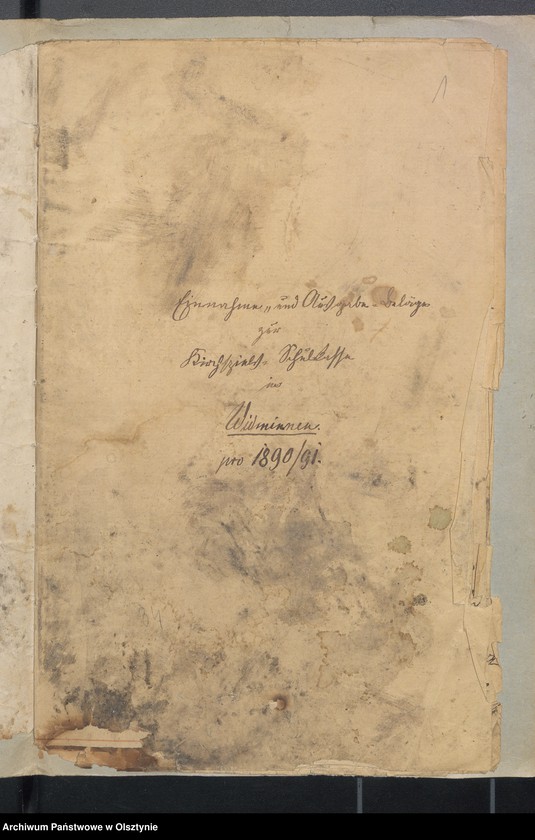 Einnahme- und Ausgabe-Beläge
zur
Kirchspiels-Schulkasse
in
Widminnen.
pro 1890/91.
Archiwum Państwowe w Olsztynie